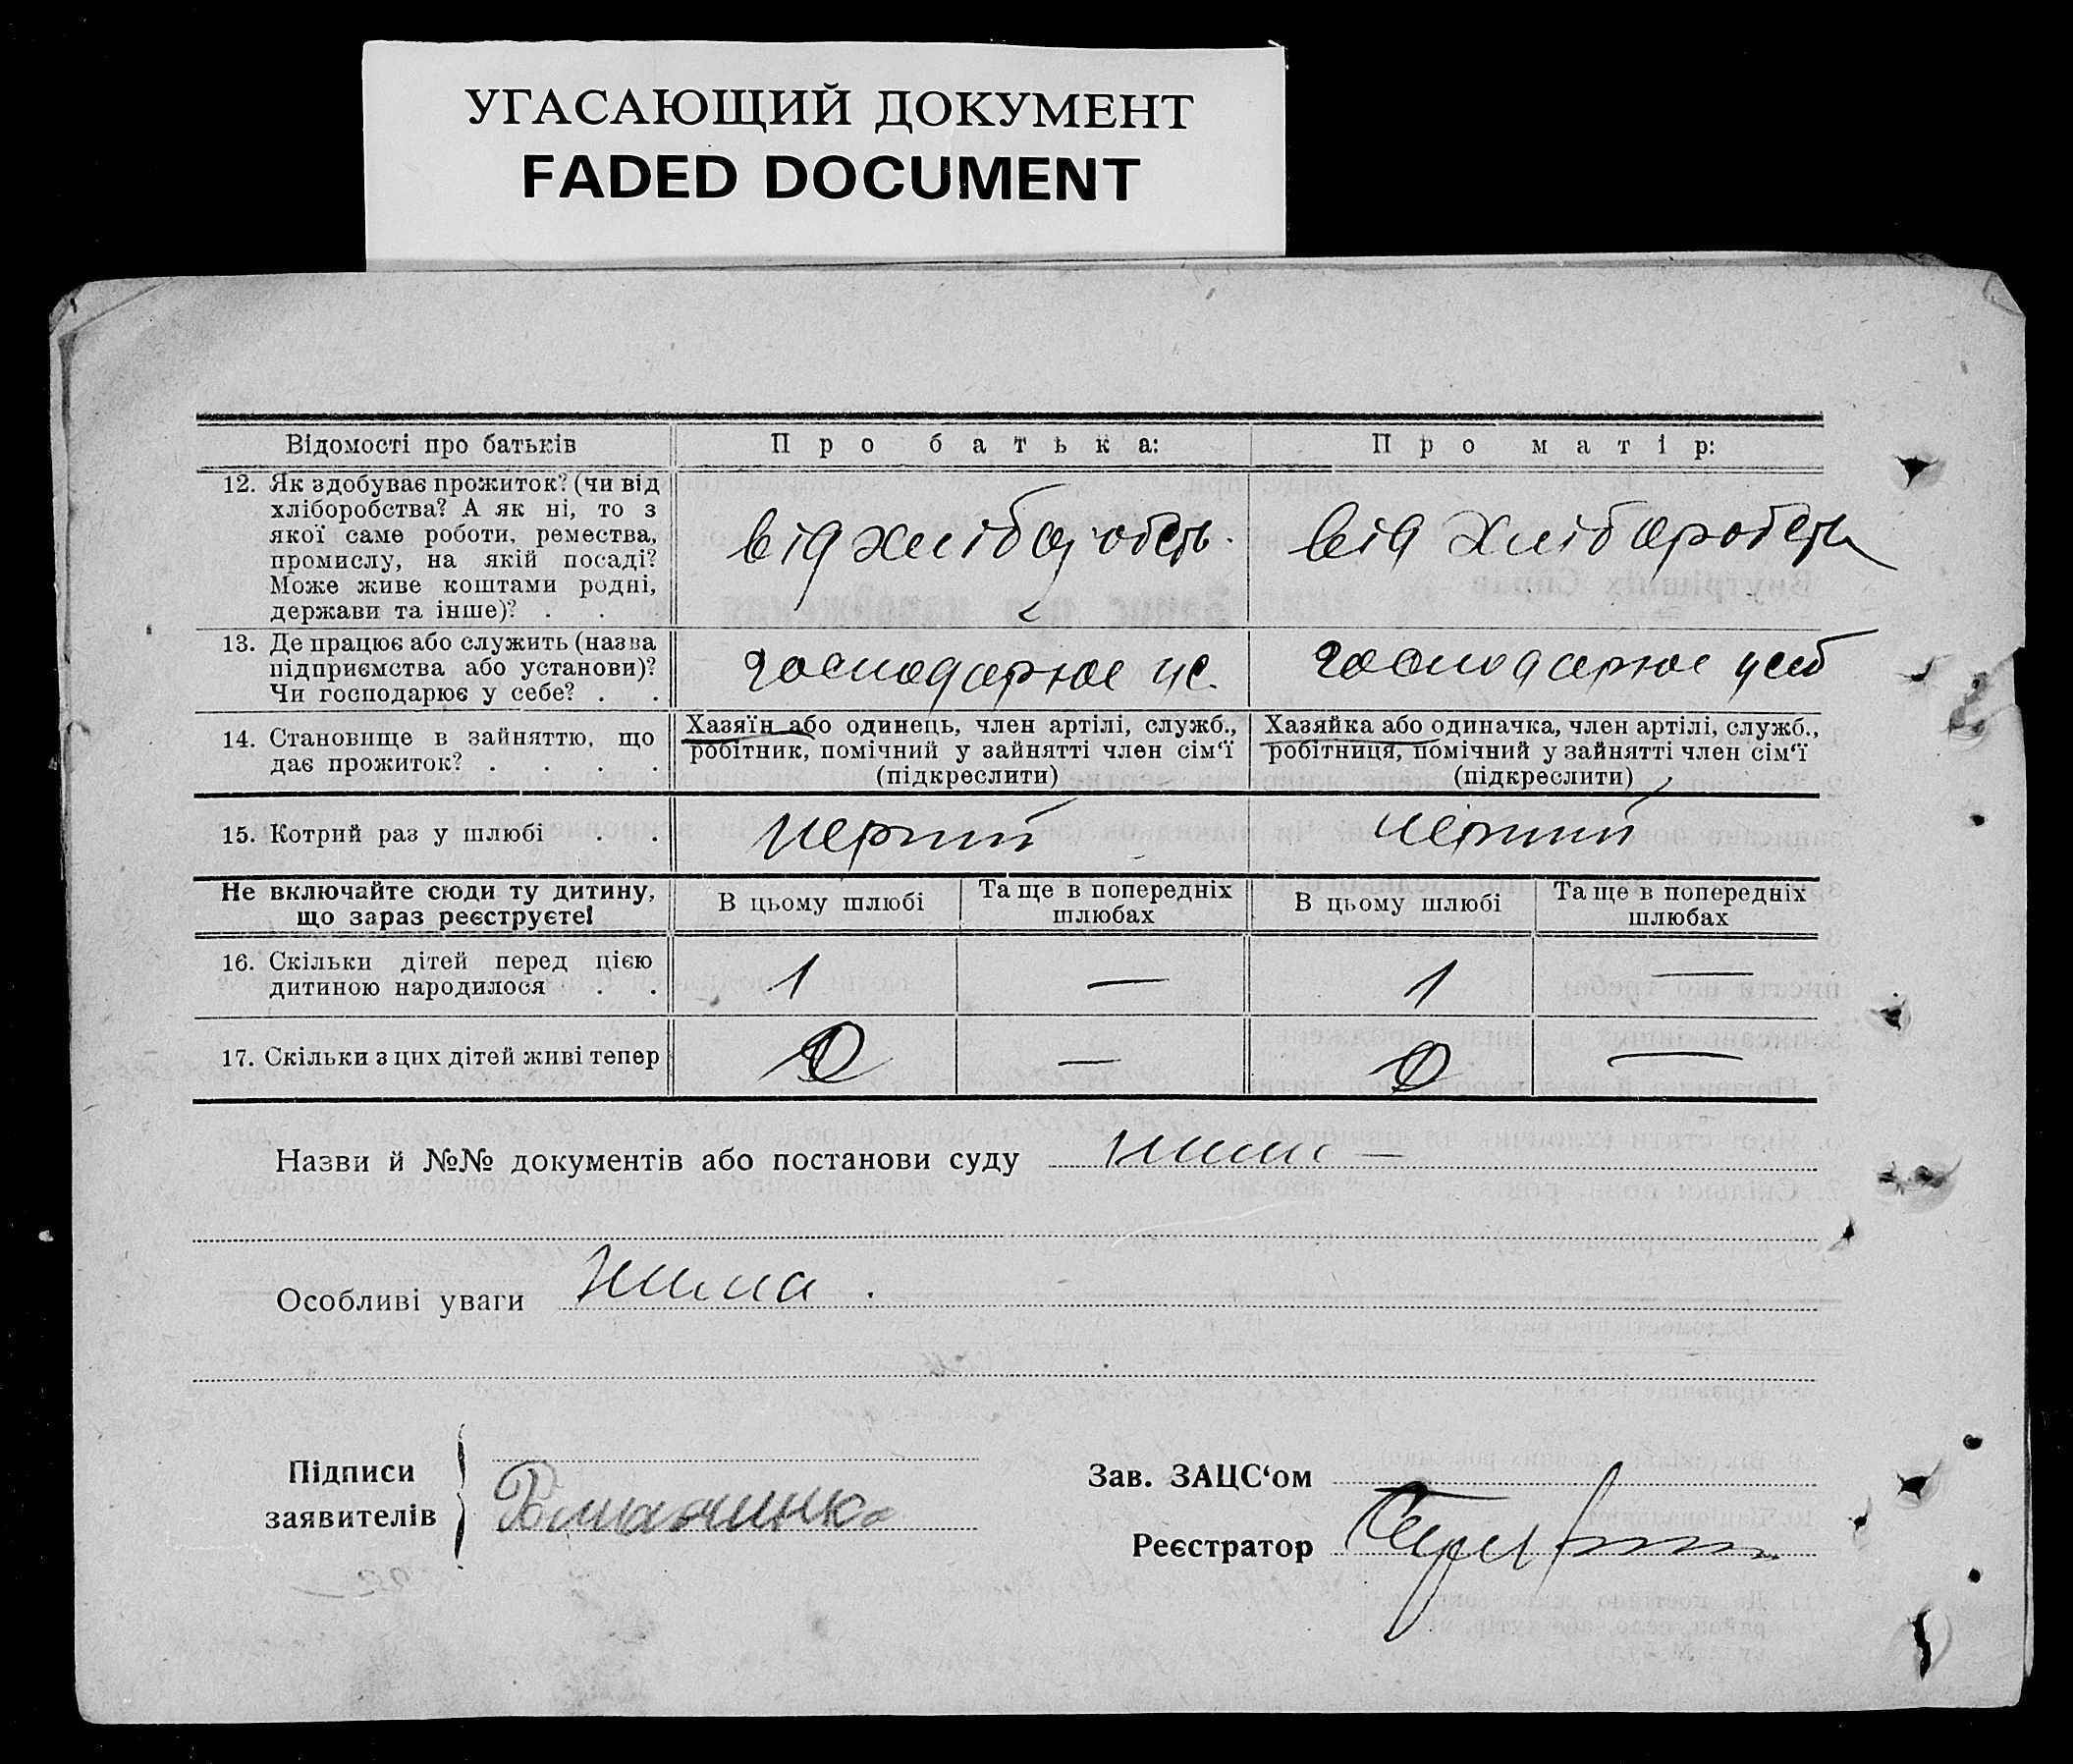 УГАСАЮЩИЙ ДОКУМЕНТ
FADED DOCUMENT
Відомості про батьків
Про батька:
Про матір:
12. Як здобуває прожиток? (чи від
хліборобства? А як ні, то з
якої саме роботи, ремества,
промислу, на якій посаді?
Може живе коштами родні,
держави та інше)? . .
від хлібороб
від хлібороб
13. Де працює або служить (назва
підприємства або установи)?
Чи господарює у себе? . .
господарює у с.
господарює у себ
14. Становище в зайняттю, що
дає прожиток? . . . .
Хазяїн або одинець, член артілі, служб.,
робітник, помічний у зайнятті член сім'ї
(підкреслити)
Хазяйка або одиначка, член артілі, служб.,
робітниця, помічний у зайнятті член сім'ї
(підкреслити)
15. Котрий раз у шлюбі . .
перший
перший
Не включайте сюди ту дитину,
що зараз реєструєте!
В цьому шлюбі
Та ще в попередніх
шлюбах
В цьому шлюбі
Та ще в попередніх
шлюбах
16. Скільки дітей перед цією
дитиною народилося . .
1
—
1
—
17. Скільки з цих дітей живі тепер
—
—
Назви й №№ документів або постанови суду
Особливі уваги нима.
Підписи
заявителів
Зав. ЗАЦС'ом
Реєстратор